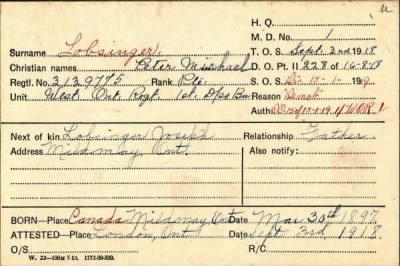 u
H. Q.
M. D. No. 1
Surname Lobsinger.
T. O. S. Sept 2nd 1918
Christian names Peter Michael
D. O. Pt II 228 of 16-8-18
Regtl. No. 3139775 Rank Pte.
S. O. S. Dis 15-1-1919
Unit West. Ont. Regt. 1st. Dpo Bn
Reason "Demob"
Auth. DO 15 of 17-1-19 1/WOR
Next of kin Lobsinger Joseph
Relationship Father
Address Mildmay, Ont.
Also notify:
BORN—Place Canada Mildmay Ont Date Mar 30th 1897
ATTESTED—Place London, Ont Date Sept 3rd, 1918.
O/S R/C
W. 22—100M 7-18. 1772-39-839.